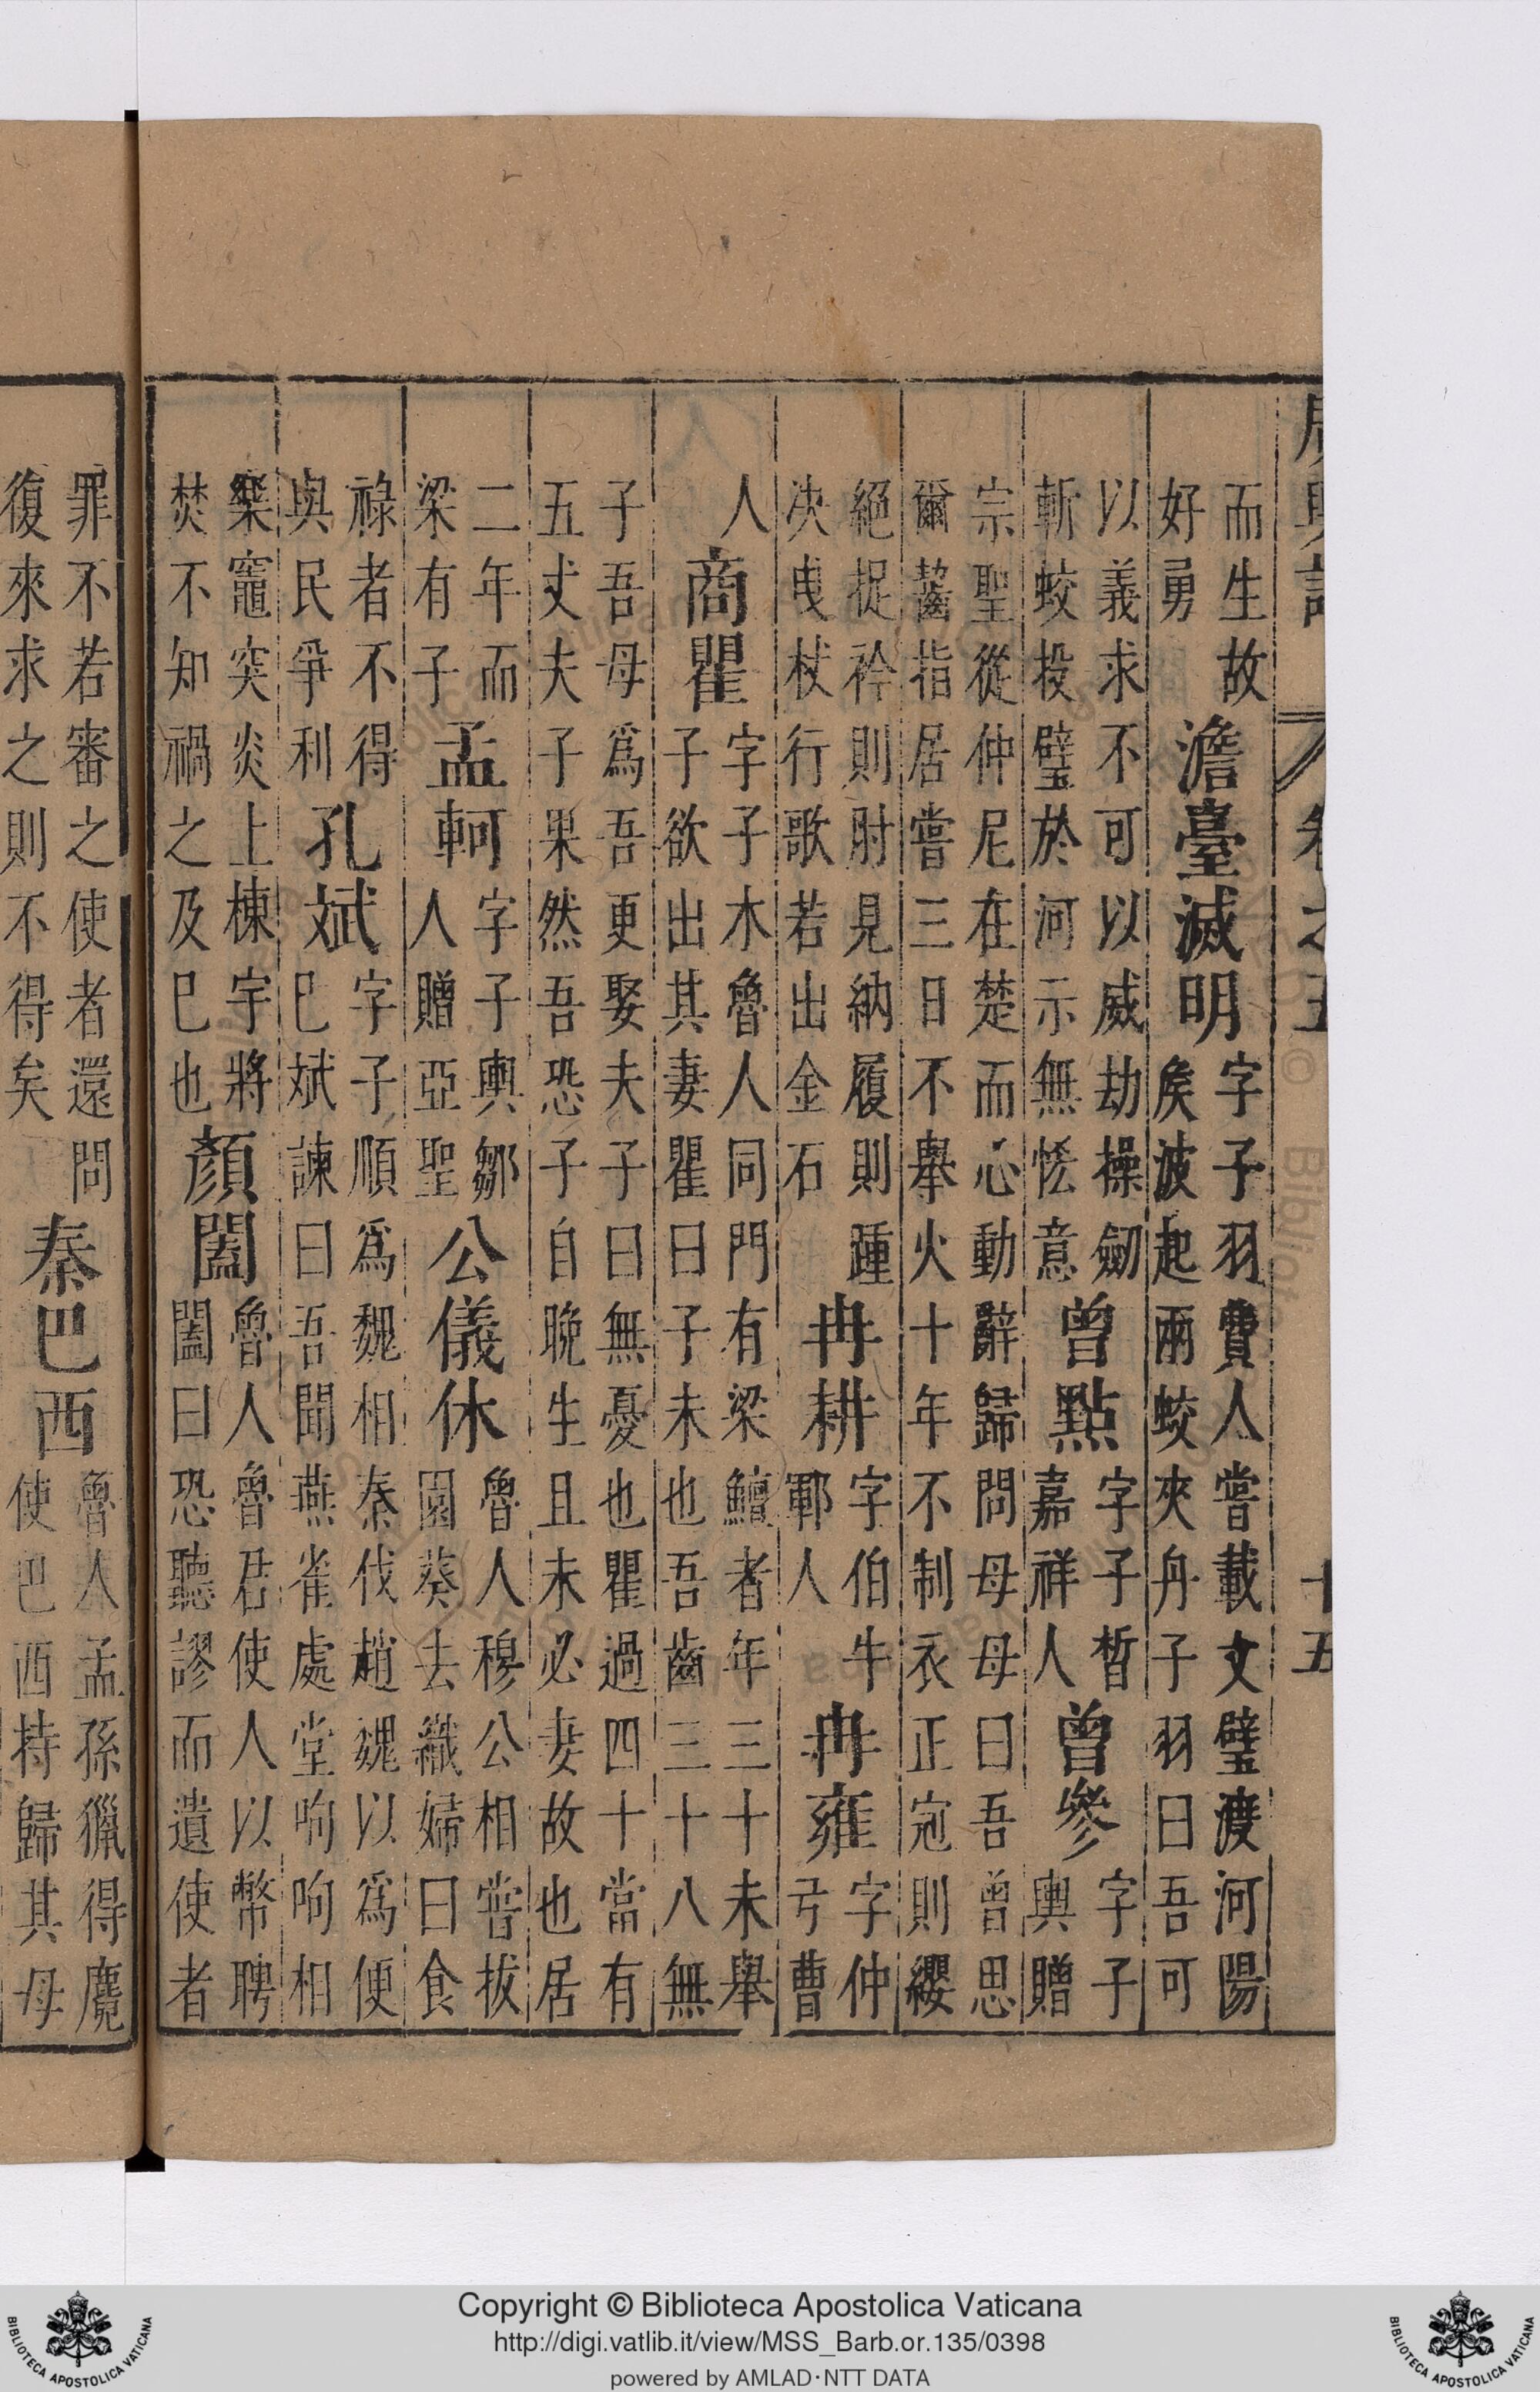 廣輿記 卷之五 十五
而生故
好勇
澹臺滅明
字子羽費人嘗載文璧渡河陽
矦波起兩蛟夾舟子羽曰吾可
以義求不可以威劫操劒
斬蛟投璧於河示無恡意
曾點
字子晳
嘉祥人
曾參
字子
輿贈
宗聖從仲尼在楚而心動辭歸問母母曰吾曾思
爾齧指居嘗三日不舉火十年不制衣正冠則纓
絕捉衿則肘見納履則踵
决曳杖行歌若出金石
冉耕
字伯牛
鄆人
冉雍
字仲
弓曹
人
商瞿
字子木魯人同門有梁鱣者年三十未舉
子欲出其妻瞿曰子未也吾齒三十八無
子吾母爲吾更娶夫子曰無憂也瞿過四十當有
五丈夫子果然吾恐子自晚生且未必妻故也居
二年而
梁有子
孟軻
字子輿鄒
人贈亞聖
公儀休
魯人穆公相嘗拔
園葵去織婦曰食
祿者不得
與民爭利
孔斌
字子順爲魏相秦伐趙魏以爲便
巳斌諫曰吾聞燕雀處堂呴呴相
樂竈突炎上棟宇將
焚不知禍之及巳也
顏闔
魯人魯君使人以幣聘
闔曰恐聽謬而遺使者
罪不若審之使者還問
復來求之則不得矣
秦巴西
魯人孟孫獵得麑
使巴西持歸其母
Copyright © Biblioteca Apostolica Vaticana
http://digi.vatlib.it/view/MSS_Barb.or.135/0398
powered by AMLAD·NTT DATA
BIBLIOTECA APOSTOLICA VATICANA
BIBLIOTECA APOSTOLICA VATICANA